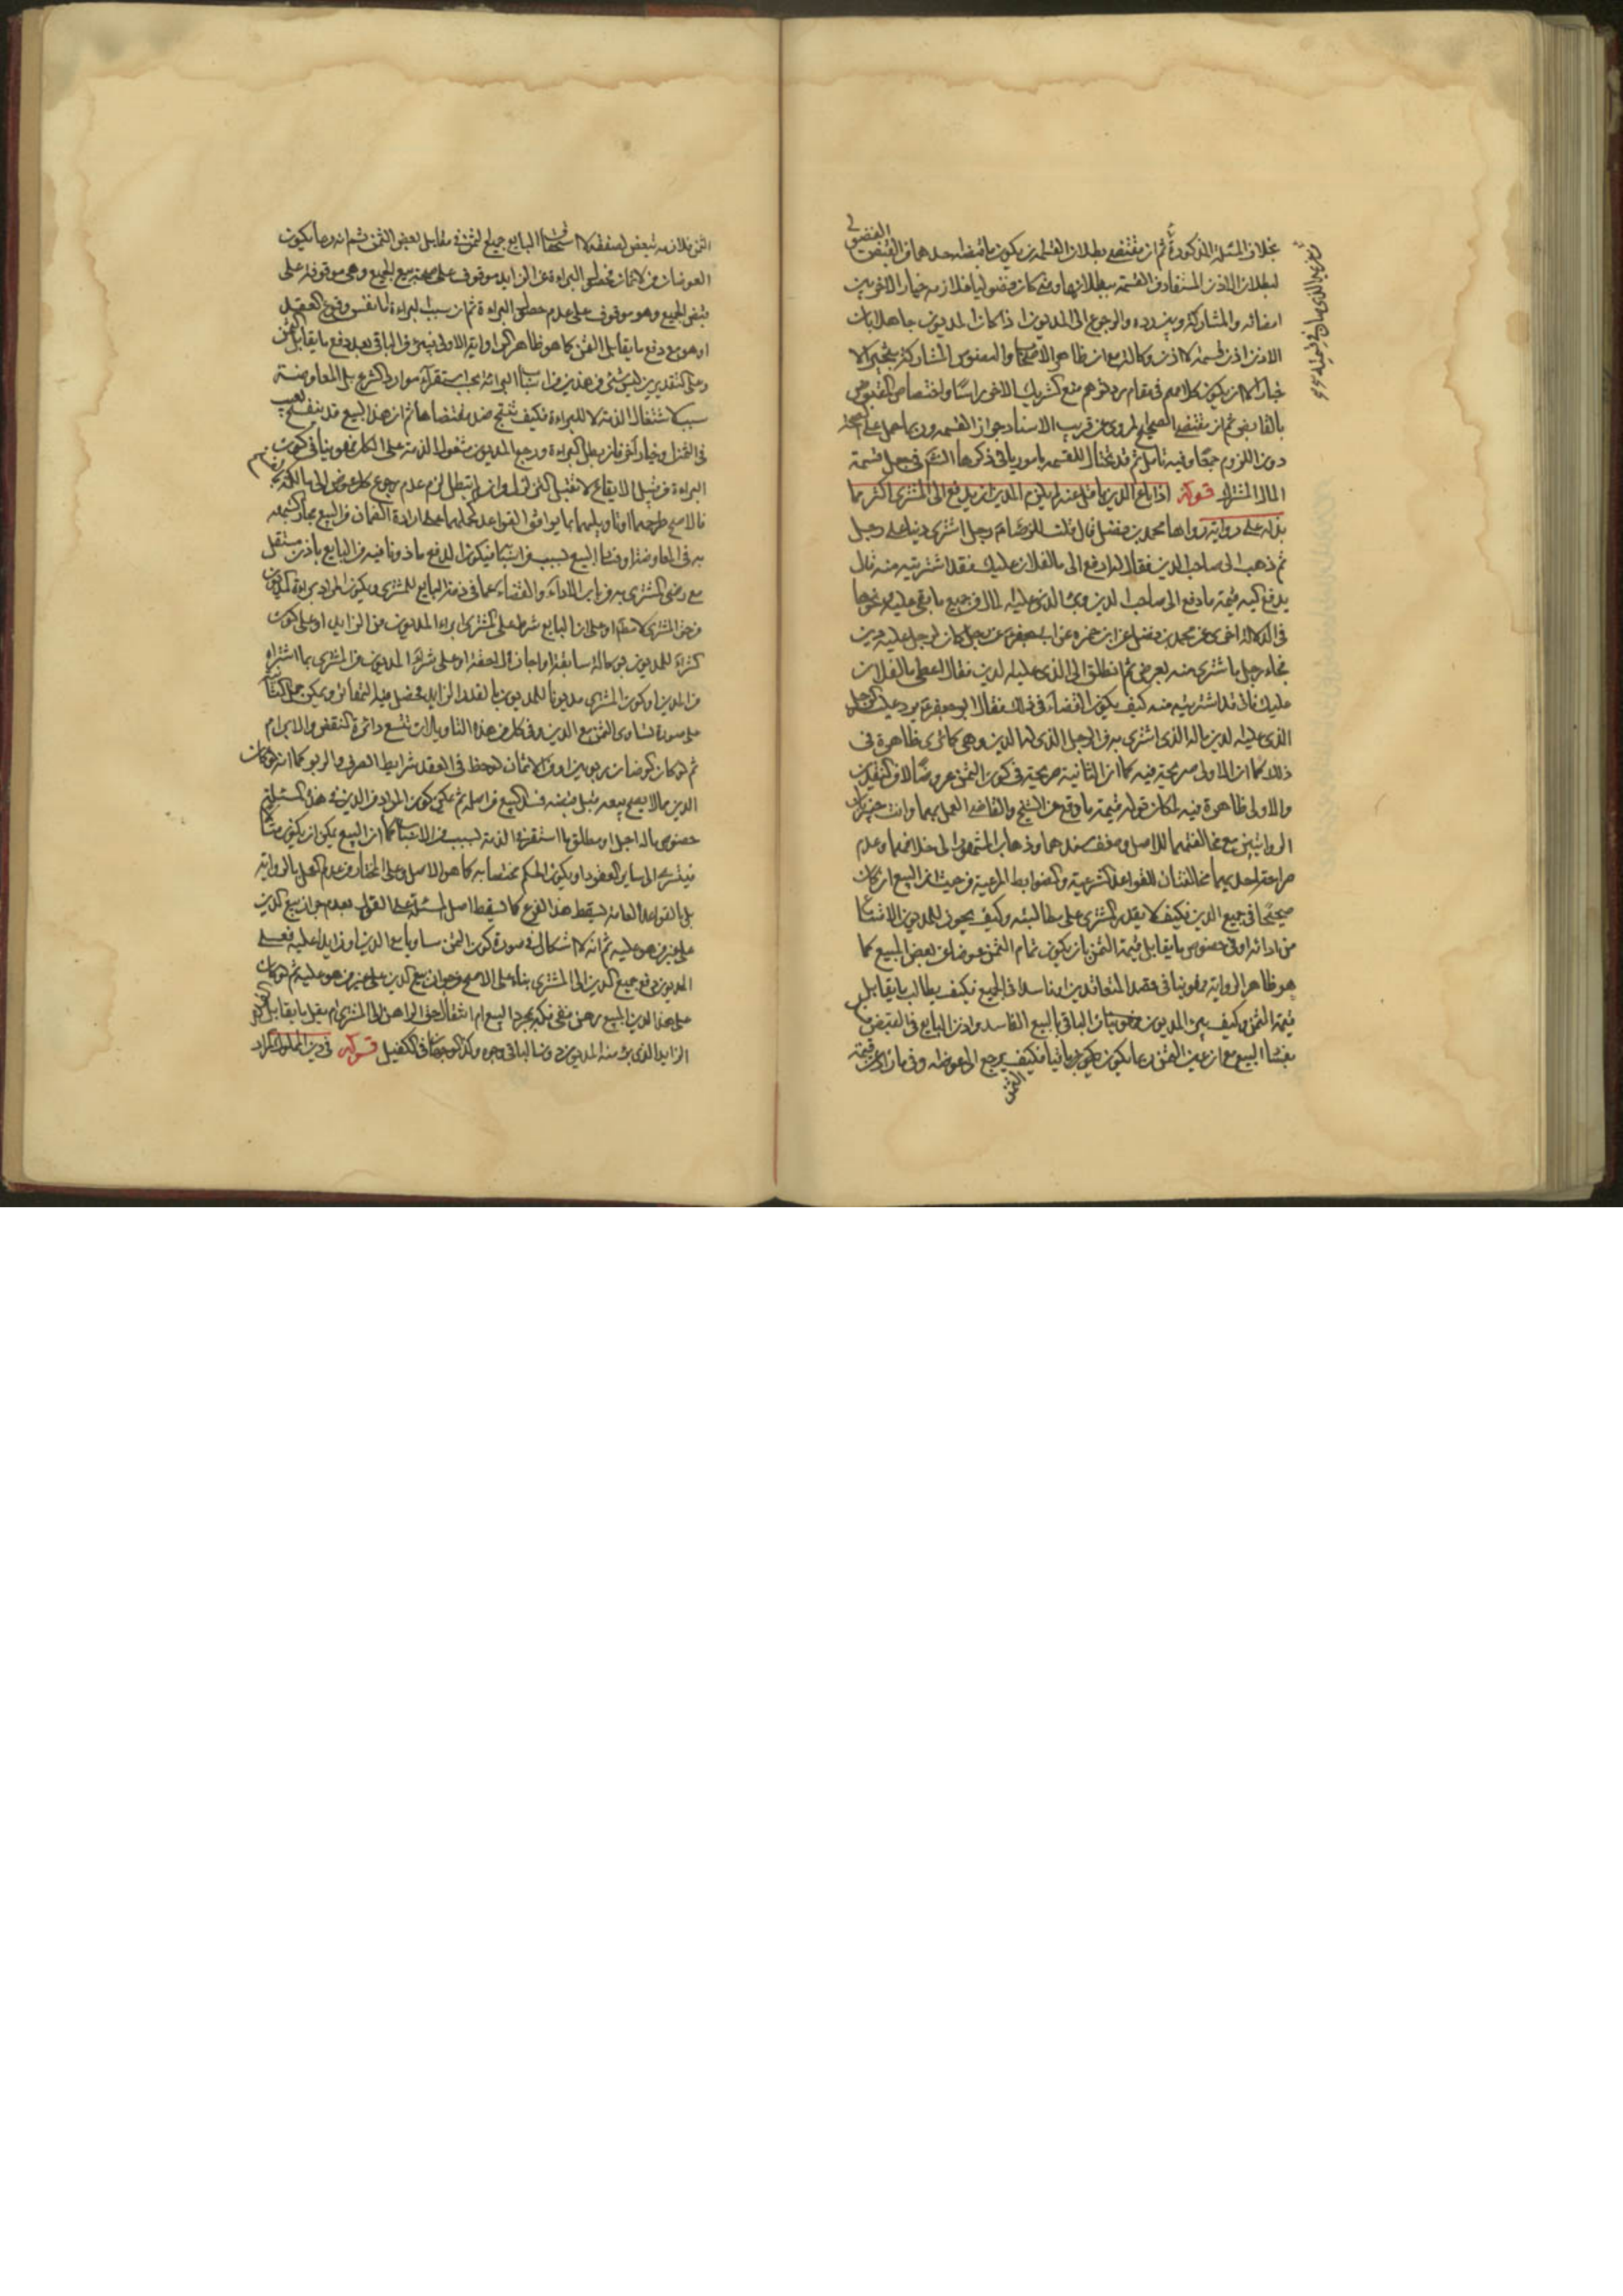 بخلاف المسئلة المذكورة ثم ان مقتضى بطلان القسمة ان يكون ما قبضه احدهما من القبض الفضولي
لبطلان الاذن المستفاد من القسمة ببطلانها ومتى كان فضوليا فلازمه خيار الاخر بين
امضائه والمشاركة وبين رده والرجوع الى المديون اذا كان المديون جاهلا بان
الاذن اذن قسمة لا اذن وكالة مع ان ظاهر الاصحاب والنصوص المشاركة بتخييره لا
خيار الا ان يكون كلامهم في مقام رد توهم منع تشريك الاخر راسا واختصاص المقبوض
بالقابض ثم ان مقتضى الصحيح المروي عن قرب الاسناد جواز القسمة وربما حمل على الصحة
دون اللزوم جمعا وفيه تأمل ثم قد يحتال للقسمة بامور ياتي ذكرها في فصل قسمة
المال المشترك قوله اذا باع الدين باقل منه لم يلزم المدين ان يدفع الى المشتري اكثر مما
بذله على رواية رواها محمد بن فضيل قال قلت للرضا ع رجل اشترى دينا على رجل
ثم ذهب الى صاحب الدين فقال له ادفع الي ما لفلان عليك فقد اشتريته منه قال
يدفع اليه قيمة ما دفع الى صاحب الدين وبرئ الذي عليه المال من جميع ما بقي عليه ونحوها
في الدلالة اخرى عن محمد بن فضيل عن ابي حمزة عن ابي جعفر ع عن رجل كان لرجل عليه دين
فجاء رجل فاشترى منه بعرض ثم انطلق الى الذي عليه الدين فقال اعطني ما لفلان
عليك فاني قد اشتريته منه كيف يكون القضاء في ذلك فقال ابو جعفر ع يرد عليه الرجل
الذي عليه الدين ماله الذي اشترى به من الرجل الذي له الدين وهي كما ترى ظاهرة في
ذلك كما ان الاولى صريحة فيه كما ان الثانية صريحة في كون الثمن عروضا لا من النقدين
والاولى ظاهرة فيه لمكان قوله قيمة ما دفع عن الشيخ والقاضي العمل بهما وانت خبير بان
الروايتين مع مخالفتهما للاصل وضعف سندهما وذهاب المشهور الى خلافهما وعدم
صراحة احديهما مخالفتان للقواعد الشرعية والضوابط المرعية من حيث ان البيع ان كان
صحيحا في جميع الدين فكيف لا يقدر المشتري على مطالبته وكيف يجوز للمديون الامتناع
من ادائه او في خصوص ما يقابل قيمة الثمن بان يكون تمام الثمن عوضا عن بعض المبيع كما
هو ظاهر الرواية فهو ينافي قصد المتعاقدين او فاسدا في الجميع فكيف يطالب بما يقابل
قيمة الثمن وكيف يبرئ المديون من الباقي بالبيع الفاسد واذن البايع في القبض
بفساد البيع مع ان عين الثمن ربما يكون باقيا فكيف يرجع الى عوضه
الثمن
الثمن فلازمه تبعض الصفقة لا استحقاق البايع جميع الثمن في مقابل بعض الثمن ثم انه ربما يكون
العوضان من الاثمان البراءة عن الزايد موقوف على صحة بيع الجميع وهي موقوفة على
قبض الجميع وهو موقوف على عدم حصول البراءة ثم ان سبب البراءة اما نفس وقوع العقد
او هو مع دفع ما يقابل الثمن كما هو ظاهر الرواية الاولى فيبرئ من الباقي بعد دفع ما يقابل الثمن
وعلى التقديرين ليس شيء من هذين من اسباب البراءة بحسب استقراء موارد الشرع بل المعاوضة
سبب لاشتغال الذمة لا للبراءة فكيف تنتج ضد مقتضاها ثم ان هذا البيع قد ينفسخ لعيب
في الثمن او خيار آخر فان بطل البراءة ورجع المديون مشغول الذمة على الكل فهو ينافي كون
البراءة من قبيل الايقاع لا تقبل التزلزل وان لم تبطل لزم عدم رجوع كل عوض الى مالكه
فالاصح طرحهما او تاويلهما بما يوافق القواعد كحملهما على ارادة الضمان من البيع مجازا لشبهه
به في المعاوضة او فساد البيع بسبب من الاسباب فيكون الدفع ماذونا فيه من البايع باذن مستقل
مع رضى المشتري به من باب الاداء والقضاء عما في ذمة البايع للمشتري ويكون المراد براءة المديون
من حق المشتري لا مطلقا او على ان البايع شرط على المشتري ابراء المديون من الزايد او على كون
الشراء للمديون بوكالة سابقة او اجازة لاحقة او على شراء المديون من المشتري بما اشتراه
من الدين او كون المشتري مديونا للمديون بالقدر الزايد فحصل فيه التهاتر ويمكن حمل الخبر
على صورة تساوي الثمن مع الدين وفي كل من هذه التاويلات تتسع دائرة النقض والابرام
ثم لو كان العوضان ربويين او من الاثمان لوحظ في العقد شرايط الصرف والربوي كما انه لو كان
الدين مما لا يصح بيعه قبل قبضه فسد البيع من اصله ثم يمكن كون المراد من الدين في هذه المسئلة
خصوص ماله اجل او مطلق ما استقر في الذمة بسبب من الاسباب كما ان البيع يمكن ان يكون مثالا
فيتسرى الى ساير العقود او يكون الحكم مختصا به كما هو الاصل وعلى المختار من عدم العمل بالرواية
بل بالقواعد العامة يسقط هذا الفرع كما يسقط اصل المسئلة على القول بعدم جواز بيع الدين
على غير من هو عليه ثم انه لا اشكال في صورة كون الثمن مساويا مع الدين او زايدا عليه فعلى
المديون دفع جميع الدين الى المشتري بناء على الاصح من جواز بيع الدين على غير من هو عليه ثم لو كان
على هذا الدين المبيع رهن ففي فكه بمجرد البيع ام انتقال حق الراهن الى المشتري ام بقدر ما يقابل
الزايد الذي برئ منه المديون وجوه وكذا الوجهان في الكفيل قوله في دين المملوك المراد